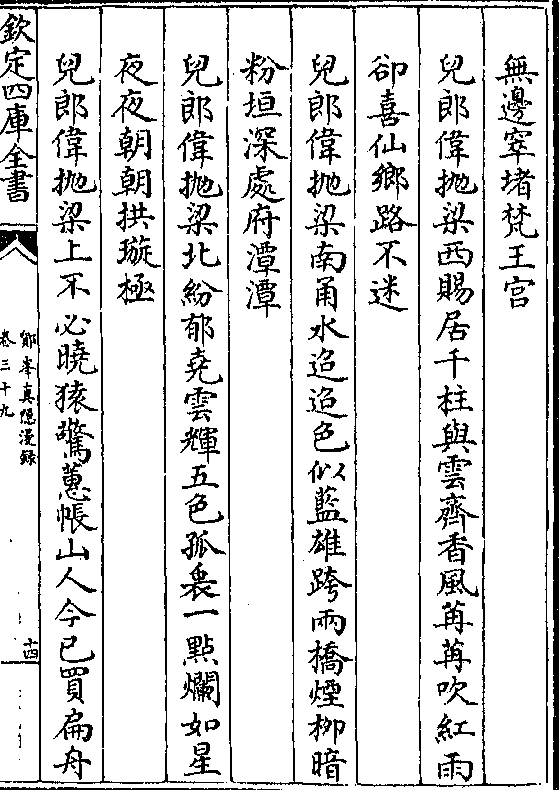 無邊窣堵梵王宫
兒郎偉抛梁西賜居千柱與雲齊香風苒苒吹紅雨
卻喜仙鄉路不迷
兒郎偉抛梁南甬水迢迢色似藍雄跨兩橋煙栁暗
粉垣深處府潭潭
兒郎偉抛梁北紛郁堯雲輝五色孤裊一點爛如星
夜夜朝朝拱璇極
兒郎偉抛梁上不必曉猿驚蕙帳山人今已買扁舟
欽定四庫全書
鄮峯真隠漫録
卷三十九
十四